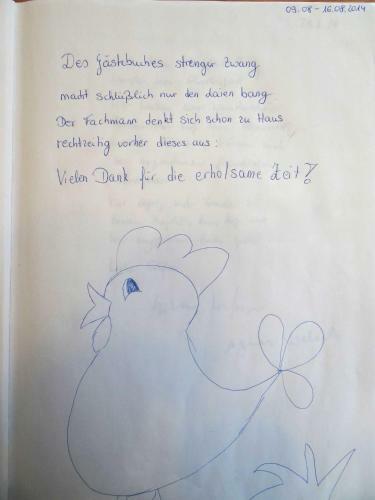 09.08 - 16.08.2014
Des Gästebuches strenger Zwang
macht schlußlich nur den daien bang
Der Fachmann denkt sich schon zu Haus
rechtzeitig vorher dieses aus:
Vielen Dank für die erholsame Zeit!